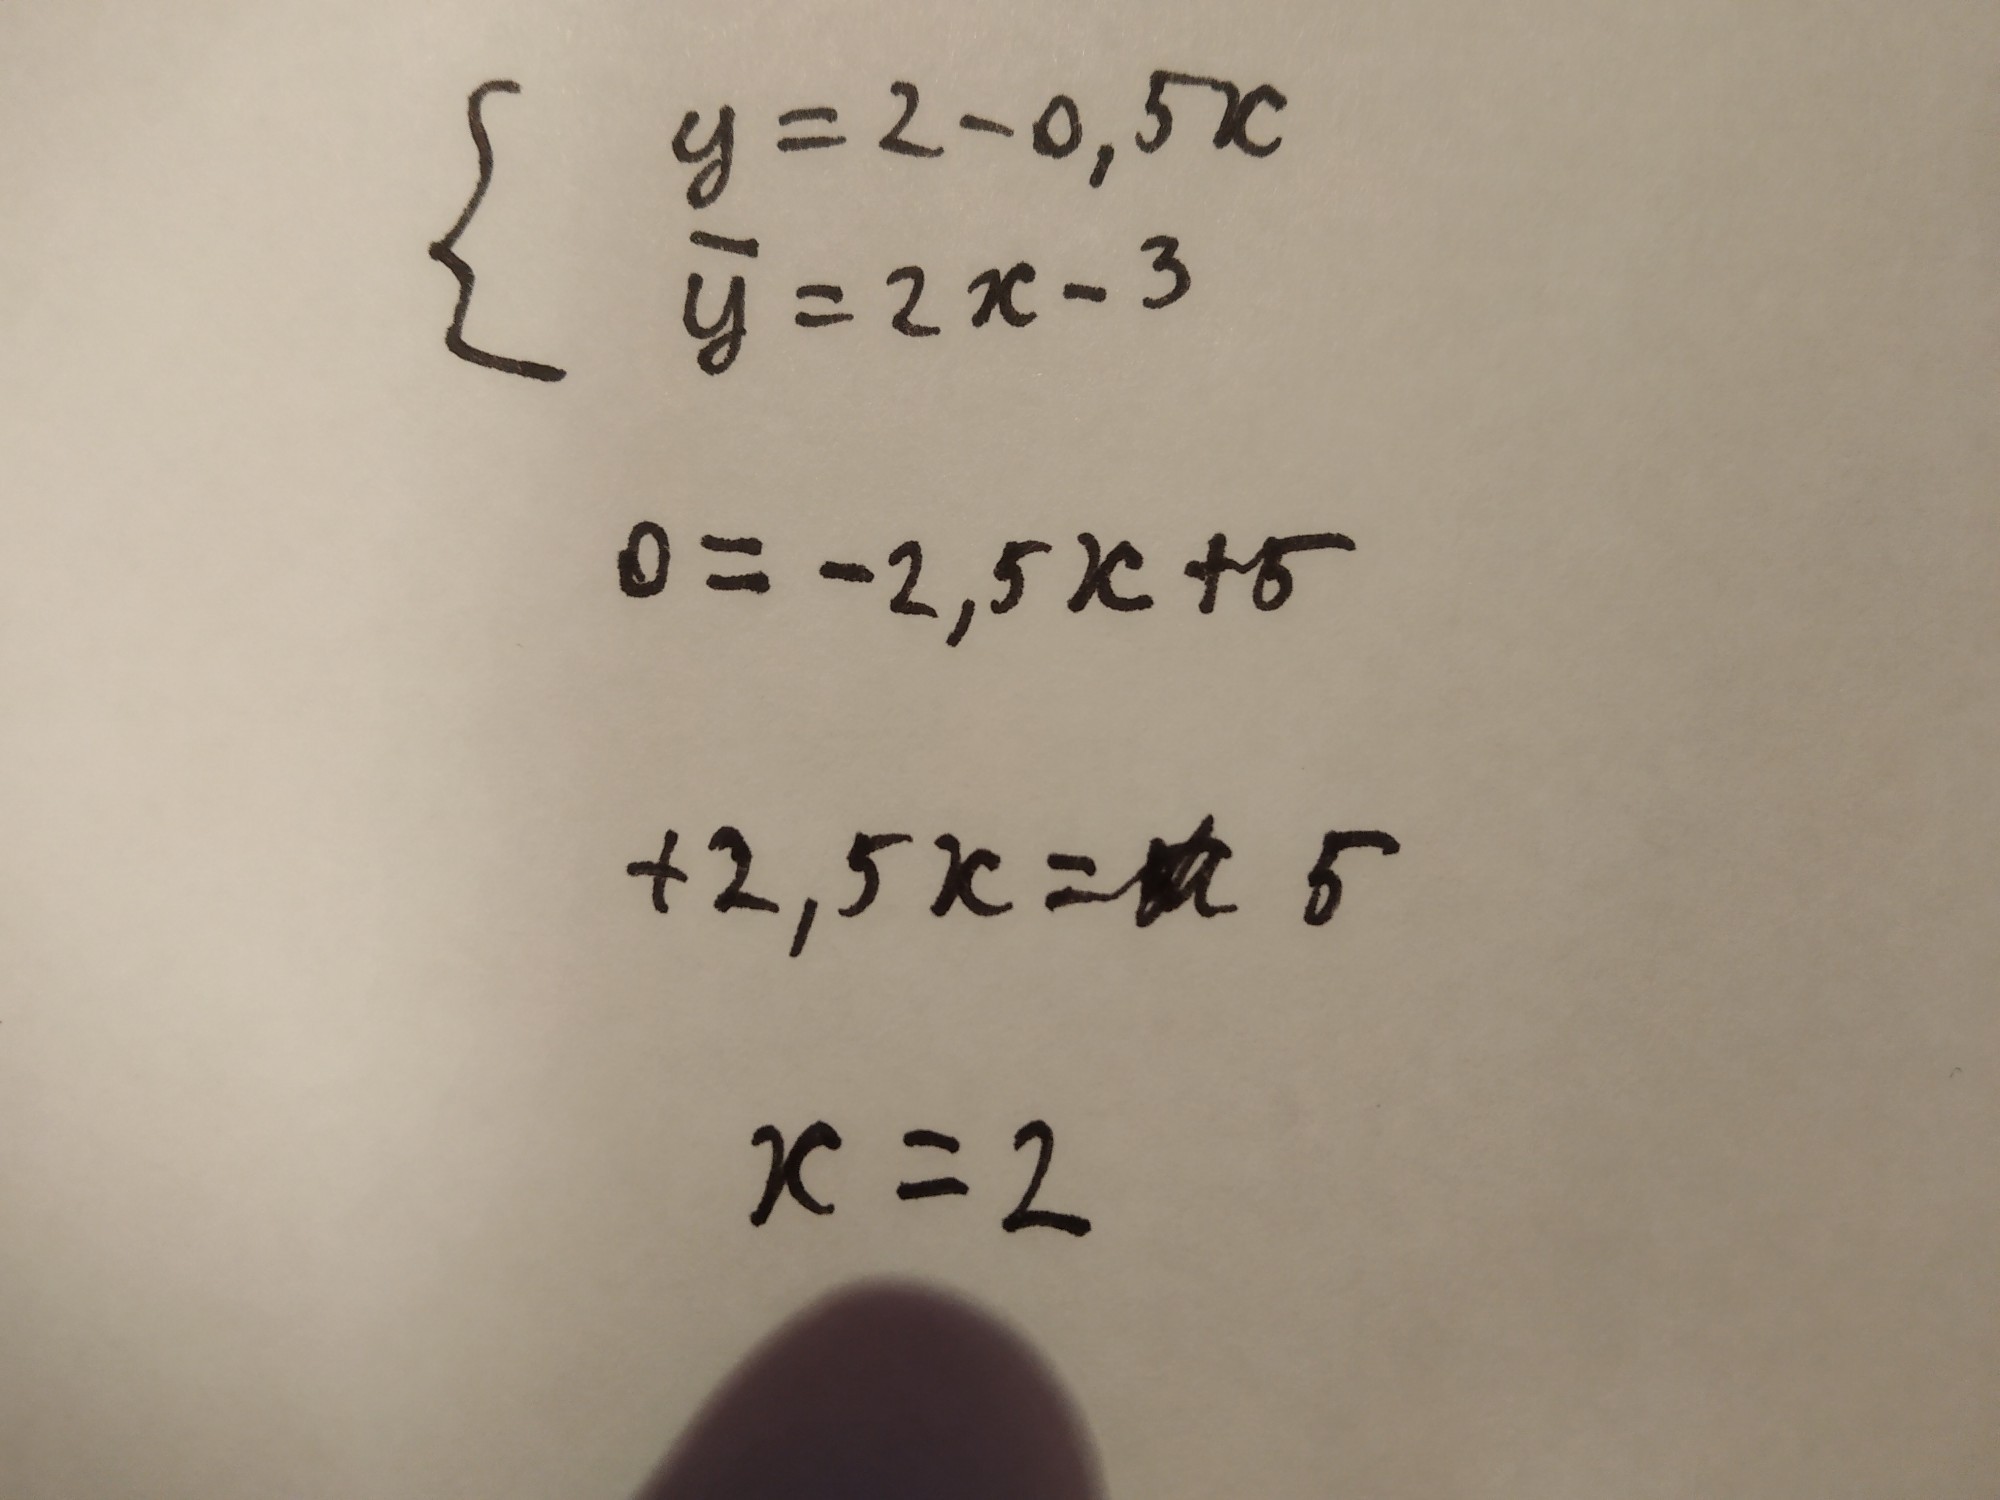 y = 2 - 0,5x
y = 2x - 3
0 = -2,5x + 5
+2,5x = 5
x = 2